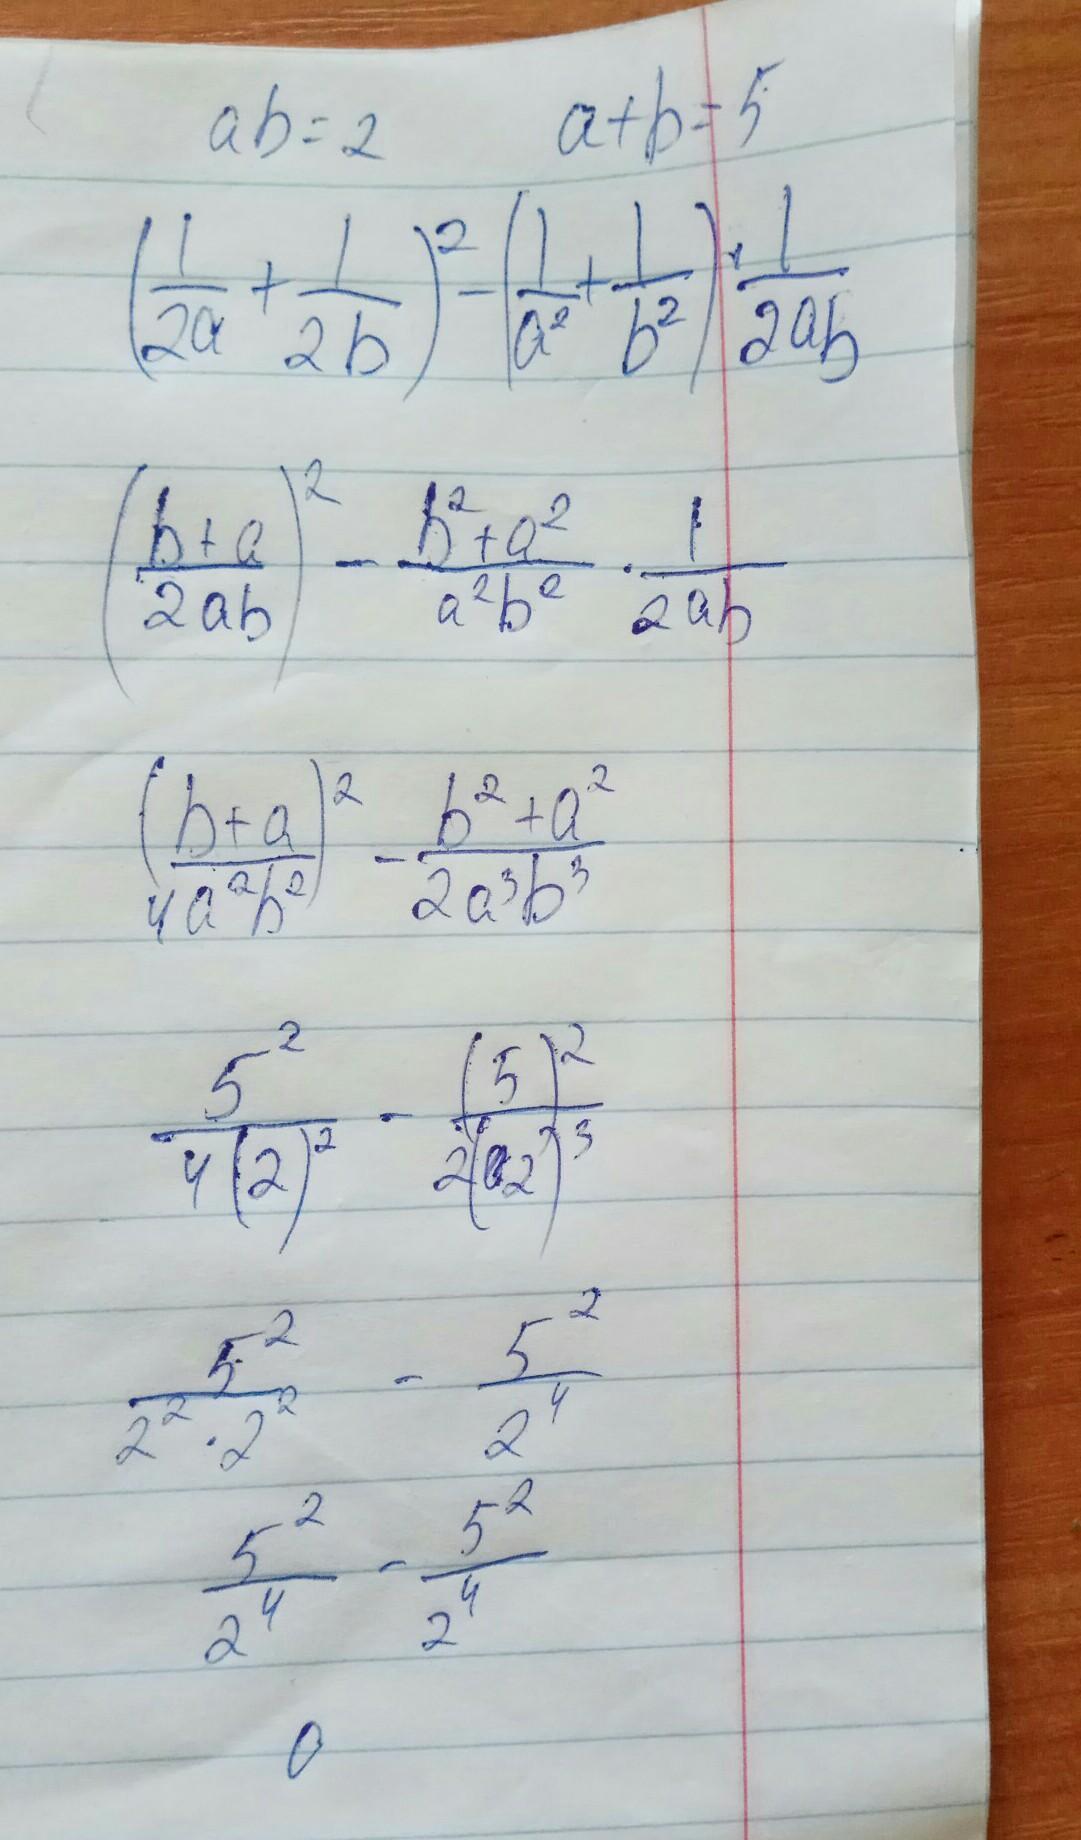 ab=2 a+b=5
(1/2a + 1/2b)² - (1/a² + 1/b²) · 1/2ab
(b+a/2ab)² - b²+a²/a²b² · 1/2ab
(b+a/4a²b²)² - b²+a²/2a³b³
5²/4(2)² - (5)²/2(2)³
5²/2²·2² - 5²/2⁴
5²/2⁴ - 5²/2⁴
0